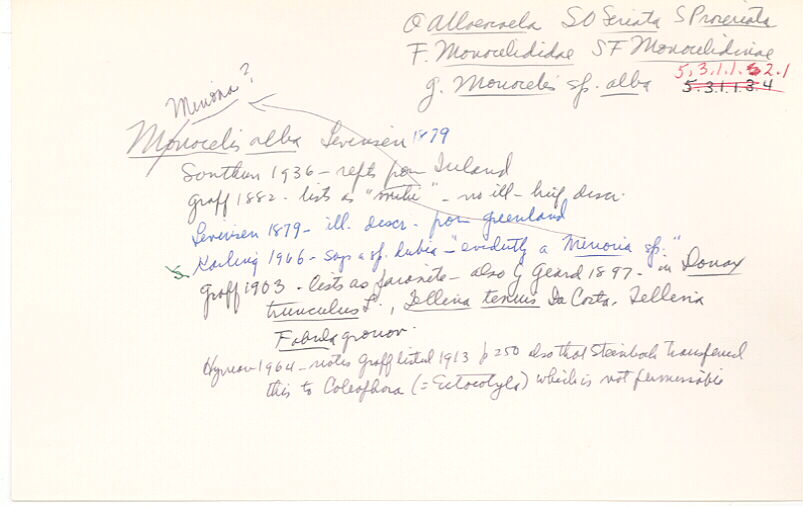 O Alloeocoela SO Seriata S Proseriata
F. Monocelididae SF Monocelidinae
g. Monocelis sp. alba 5.3.1.1.2.1
5.3.1.1.3.4
Minona?
Monocelis alba Levinsen 1879
Southern 1936 - repts from Ireland
Graff 1882 - lists as " " - no ill - brief descr.
Levinsen 1879 - ill. descr. from Greenland
Karling 1966 - says a sp. dubia - "evidently a Minona sp."
Graff 1903 - lists as parasite - also by Giard 1897 - in Donax
trunculus L., Tellina tenuis Da Costa, Tellina
Fabula gronov.
Hyman 1964 - notes Graff listed 1913 p 250 also that Steinbock transferred
this to Coleophora (= Ectocotyla) which is not permissible